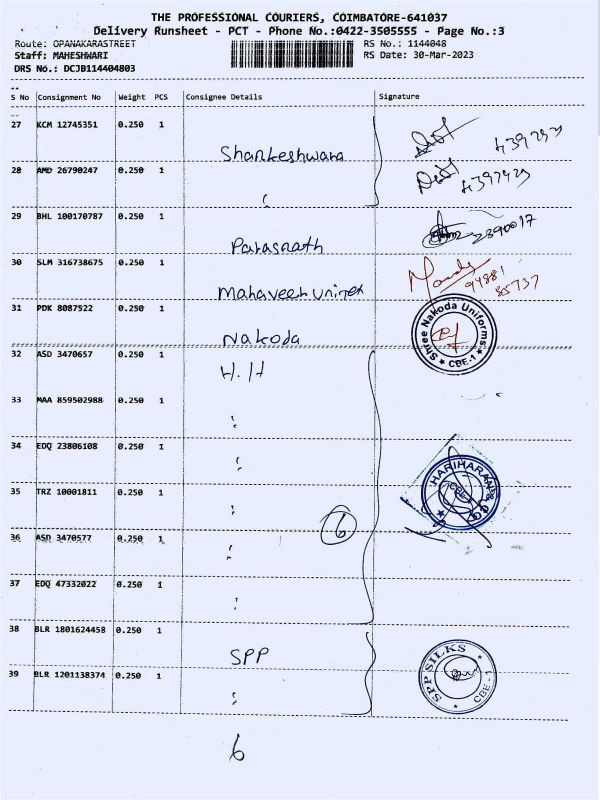 THE PROFESSIONAL COURIERS, COIMBATORE-641037
Delivery Runsheet - PCT - Phone No.:0422-3505555 - Page No.:3
Route: OPANAKARASTREET RS No.: 1144048
Staff: MAHESHWARI RS Date: 30-Mar-2023
DRS No.: DCJB114404803
S No Consignment No Weight PCS Consignee Details Signature
27 KCM 12745351 0.250 1
Shankeshwara
28 AMD 26790247 0.250 1
29 BHL 100170787 0.250 1
Parasnath 2390017
30 SLM 316738675 0.250 1
Mahaveer 94881
85737
31 PDK 8087522 0.250 1
Nakoda Shree Nakoda Uniforms
CBE-1
32 ASD 3470657 0.250 1
H.H
33 MAA 859502988 0.250 1
34 EDQ 23806108 0.250 1
35 TRZ 10001811 0.250 1
6
36 ASD 3470577 0.250 1
37 EDQ 47332022 0.250 1
38 BLR 1801624458 0.250 1
SPP SPP SILKS
CBE-1
39 BLR 1201138374 0.250 1
6